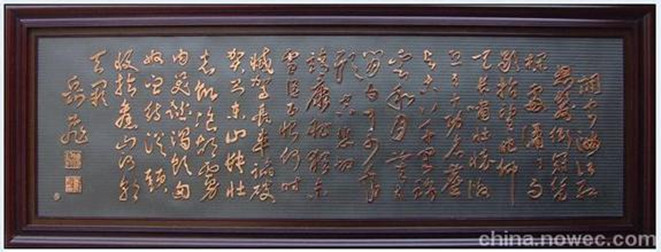 調寄滿江紅
怒髮衝冠憑
欄處瀟瀟雨
歇抬望眼仰
天長嘯壯懷激
烈三十功名塵
土八千里路
雲和月莫等
閒白了少年
頭空悲切
靖康恥猶未
雪臣子恨何時
滅駕長車踏破
賀蘭山缺壯
志飢餐胡虜
肉笑談渴飲匈
奴血待從頭
收拾舊山河朝
天闕
岳飛
china.nowec.com